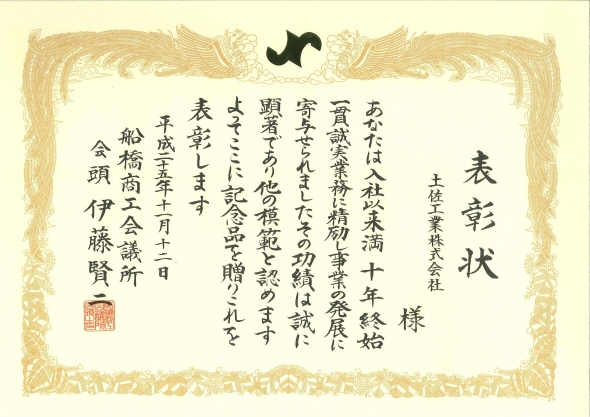 表彰状
土佐工業株式会社
様
あなたは入社以来満十年終始
一貫誠実業務に精励し事業の発展に
寄与せられましたその功績は誠に
顕著であり他の模範と認めます
よってここに記念品を贈りこれを
表彰します
平成二十五年十一月十二日
船橋商工会議所
会頭 伊藤賢二